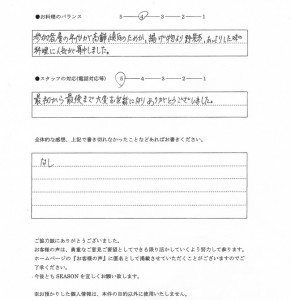 ●お料理のバランス 5-4-3-2-1
料理に人気が集中しました。
●スタッフの対応(電話対応等) 5-4-3-2-1
最初から最後まで大変お世話になりありがとうございました。
全体的な感想、上記で書き切れなかったことなどあればお書きください。
なし
ご協力誠にありがとうございました。
お客様の声は、貴重なご意見ご要望としてできる限り活かしていくよう努力して参ります。
ホームページの『お客様の声』に匿名として掲載させていただくことがございますのでご
了承ください。
今後とも SEASON を宜しくお願い致します。
※お預かりした個人情報は、本件の目的以外に使用いたしません。